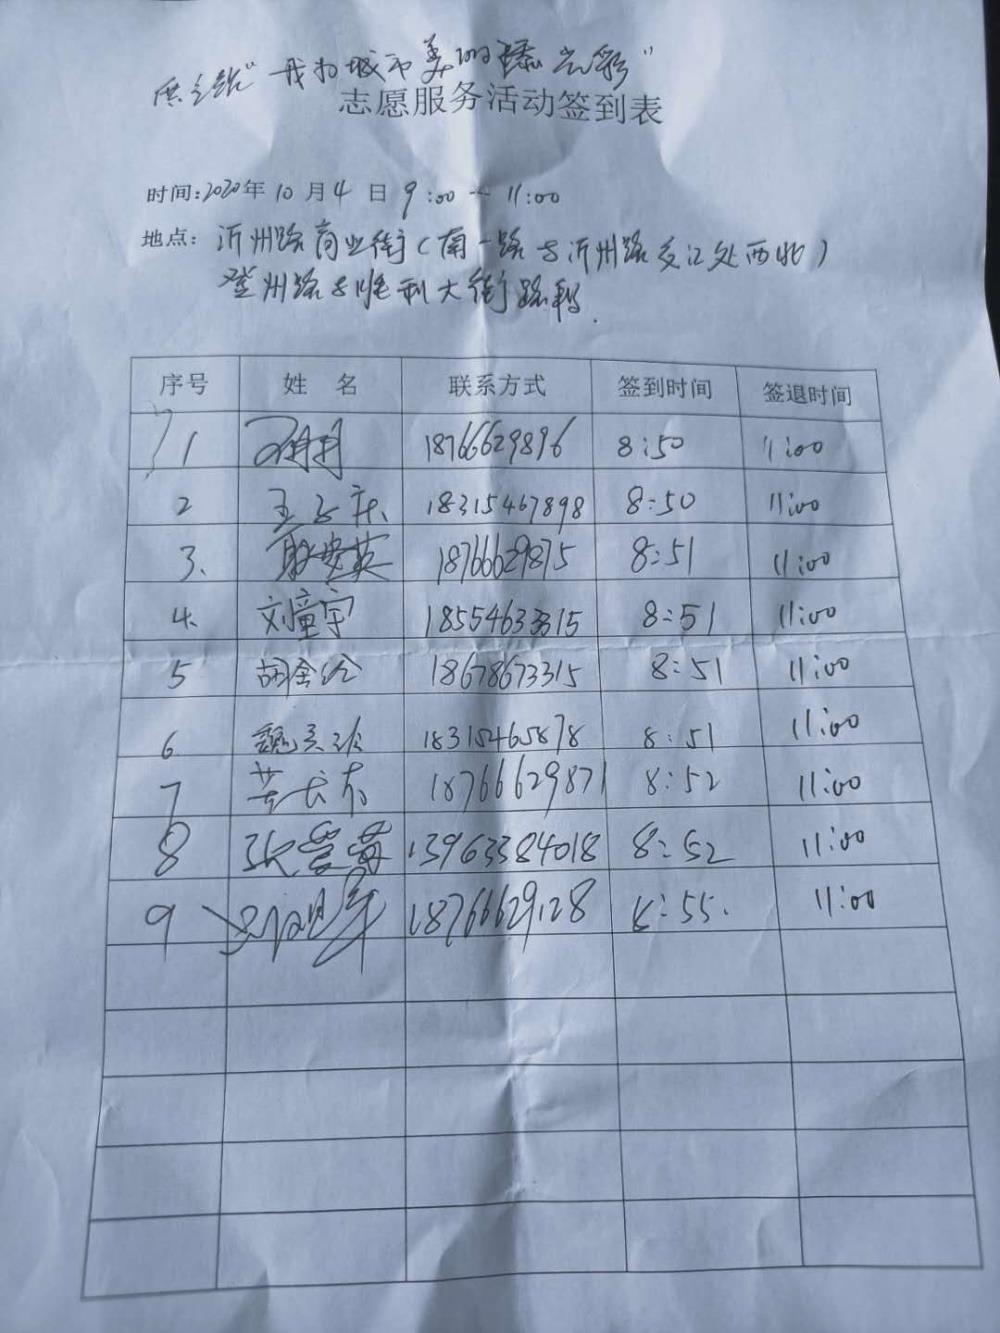 "我为城市美的添光彩"
志愿服务活动签到表
时间:2020年10月4日 9:00-11:00
地点: 沂州路商业街(南一路与沂州路交汇处西北)
登州路与胜利大街路段.
序号 姓名 联系方式 签到时间 签退时间
1 18766629896 8:50 11:00
2 王玉庆 18315467898 8:50 11:00
3、 耿安英 18766629875 8:51 11:00
4、 刘童宇 18554633315 8:51 11:00
5 胡金玲 18678673315 8:51 11:00
6 18315465878 8:51 11:00
7 18766629871 8:52 11:00
8 张莹莹 13963384018 8:52 11:00
9 18766629128 8:55. 11:00